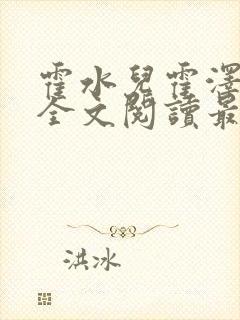 霍水兒霍澤
全文閱讀最
洪冰